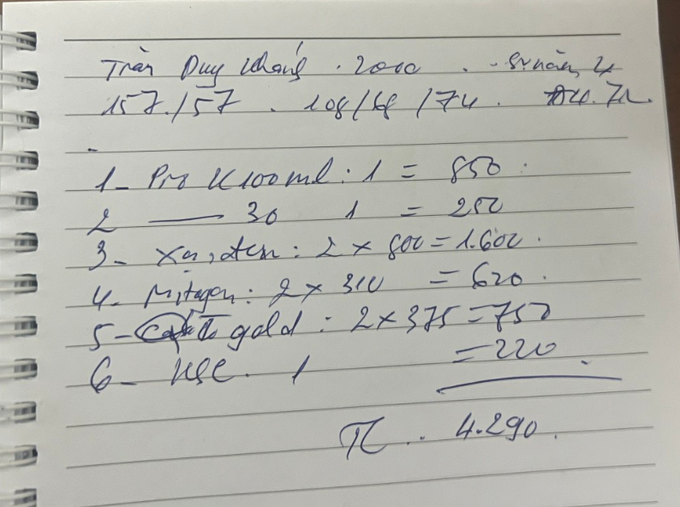 Trần Duy Khánh . 2000 . - Sv năm 4
157 / 57 . 108/68 /74 .
1 - Pro K 100ml : 1 = 850
2 — 30 1 = 250
3 - : 2 x 800 = 1.600 .
4 - Mitagen : 2 x 310 = 620 .
5 - gold : 2 x 375 = 750
6 - KSC . 1 = 220
TC .. 4.290 .